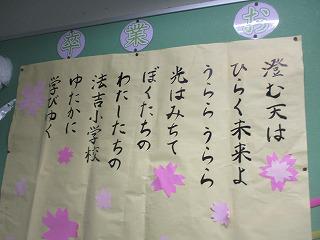 お業幸
澄む天は
ひらく未来よ
うらら うらら
光はみちて
ぼくたちの
わたしたちの
法吉小学校
ゆたかに
学びゆく